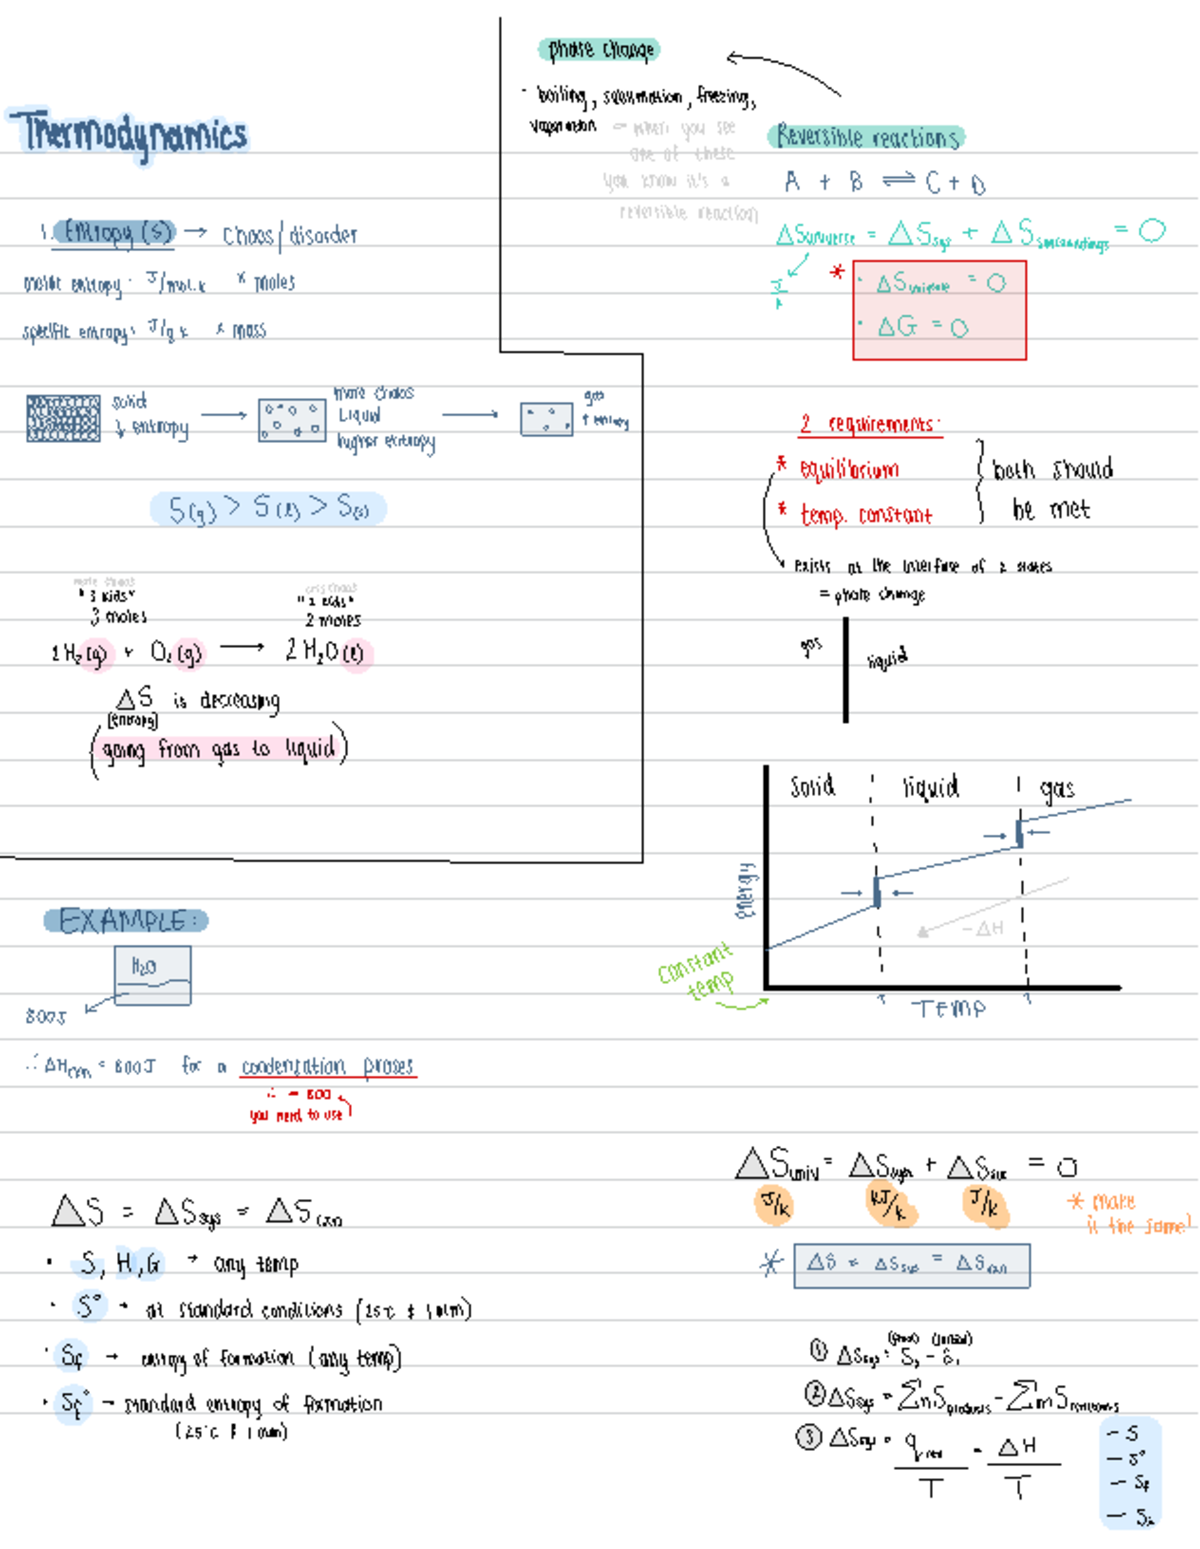 Thermodynamics
1. Entropy (S) → chaos/disorder
molar entropy: J/mol.k x moles
specific entropy: J/g k x mass
solid
↓ entropy
more chaos
Liquid
higher entropy
gas
↑ entropy
S(g) > S(l) > S(s)
more chaos
"3 kids"
3 moles
less chaos
"2 kids"
2 moles
2H₂(g) + O₂(g) → 2H₂O(l)
ΔS is decreasing
(entropy)
(going from gas to liquid)
phase change
· boiling, sublimation, freezing,
= when you see
one of these
you know it's a
reversible reaction
Reversible reactions
A + B ⇌ C + D
ΔSuniverse = ΔSsys + ΔSsurroundings = 0
J/k
* · ΔSuniverse = 0
· ΔG = 0
2 requirements:
* equilibrium
* temp. constant
both should
be met
exists at the interface of 2 states
= phase change
gas
liquid
solid liquid gas
energy
-ΔH
constant
temp
TEMP
EXAMPLE:
H₂O
800J
∴ ΔHcon = 800J for a condensation proses
∴ - 800
you need to use
ΔS = ΔSsys = ΔScon
· S, H, G → any temp
· S° → at standard conditions (25°c & 1 atm)
· Sf → entropy of formation (any temp)
· Sf° → standard entropy of formation
(25°c & 1 atm)
ΔSuniv = ΔSsys + ΔSsur = 0
J/k kJ/k J/k
* make
it the same!
* ΔS = ΔSsys = ΔScon
(final) (initial)
① ΔSsys = Sf - Si
② ΔSsys = ΣnSproducts - ΣmSreactants
③ ΔSsys = qrev/T = ΔH/T
- S
- S°
- Sf